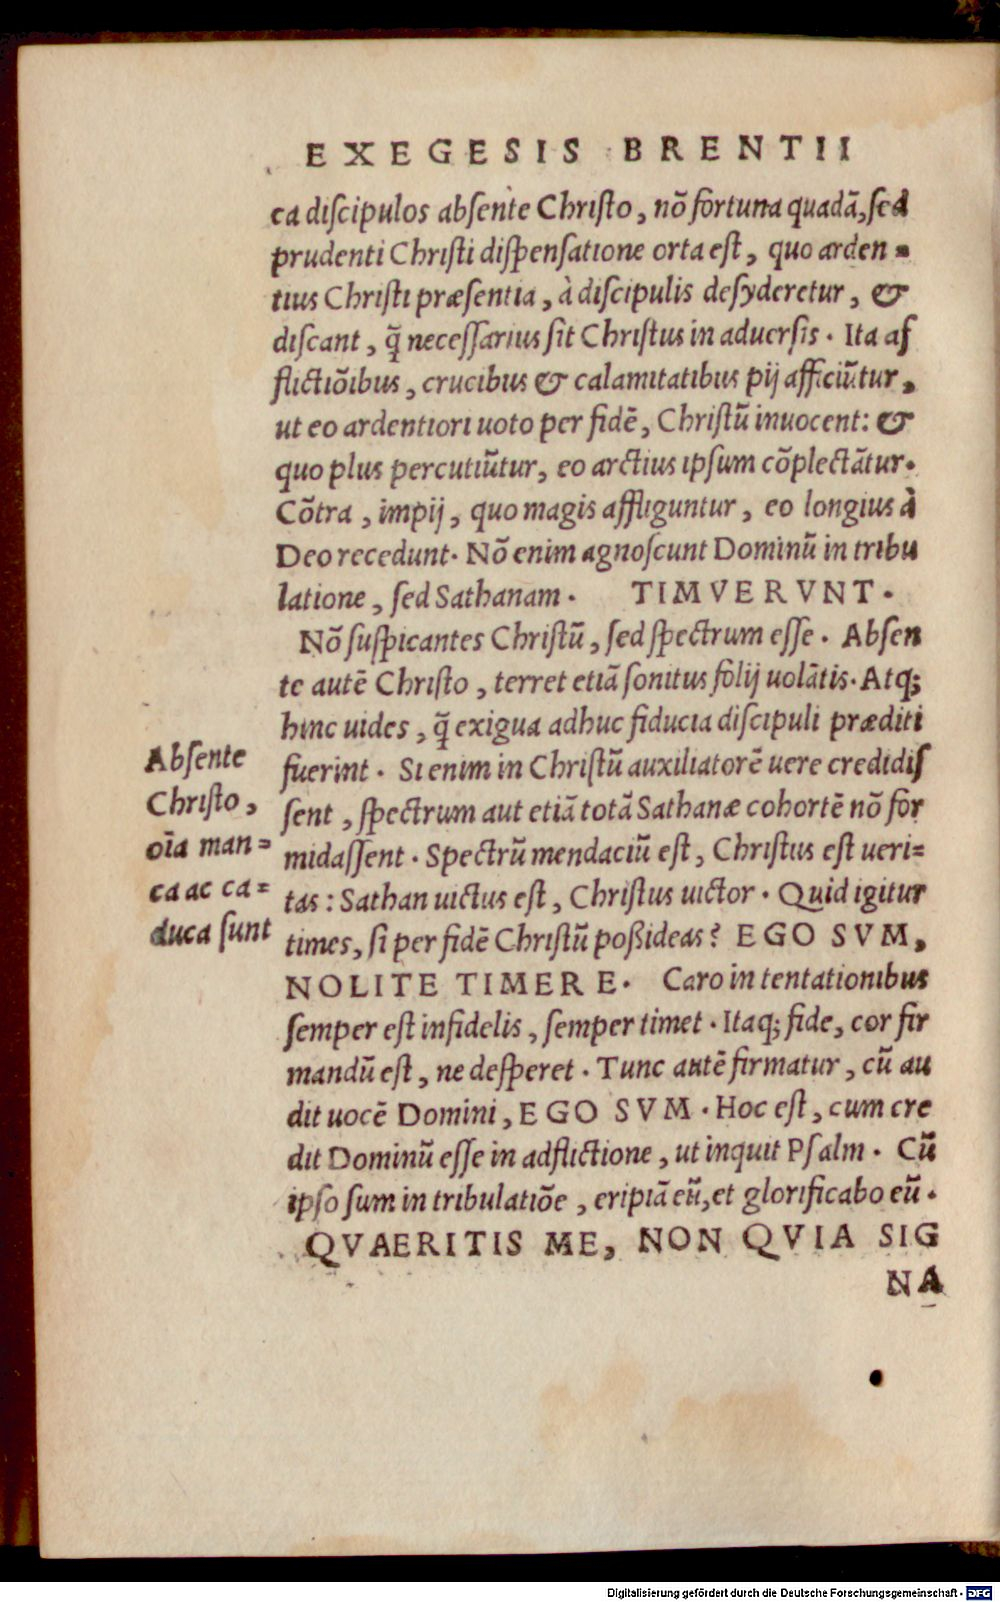 EXEGESIS BRENTII
ca diſcipulos abſente Chriſto, nõ fortuna quadã, ſed
prudenti Chriſti diſpenſatione orta eſt, quo arden=
tius Chriſti præſentia, à diſcipulis deſyderetur, &
diſcant, q̃ neceſſarius ſit Chriſtus in aduerſis. Ita af
flictiõibus, crucibus & calamitatibus pij afficiũtur,
ut eo ardentiori uoto per fidẽ, Chriſtũ inuocent: &
quo plus percutiũtur, eo arctius ipſum cõplectãtur.
Cõtra, impij, quo magis affliguntur, eo longius à
Deo recedunt. Nõ enim agnoſcunt Dominũ in tribu
latione, ſed Sathanam. TIMVERVNT.
Nõ ſuſpicantes Chriſtũ, ſed ſpectrum eſſe. Abſen
te autẽ Chriſto, terret etiã ſonitus folij uolãtis. Atq;
hinc uides, q̃ exigua adhuc fiducia diſcipuli præditi
fuerint. Si enim in Chriſtũ auxiliatorẽ uere credidiſ
ſent, ſpectrum aut etiã totã Sathanæ cohortẽ nõ for
midaſſent. Spectrũ mendaciũ eſt, Chriſtus eſt ueri=
tas: Sathan uictus eſt, Chriſtus uictor. Quid igitur
times, ſi per fidẽ Chriſtũ poßideas? EGO SVM,
NOLITE TIMERE. Caro in tentationibus
ſemper eſt infidelis, ſemper timet. Itaq; fide, cor fir
mandũ eſt, ne deſperet. Tunc autẽ firmatur, cũ au
dit uocẽ Domini, EGO SVM. Hoc eſt, cum cre
dit Dominũ eſſe in adflictione, ut inquit Pſalm. Cũ
ipſo ſum in tribulatiõe, eripiã eũ, et glorificabo eũ.
QVAERITIS ME, NON QVIA SIG
NA
Abſente
Chriſto,
oĩa man=
ca ac ca=
duca ſunt
Digitalisierung gefördert durch die Deutsche Forschungsgemeinschaft - DFG